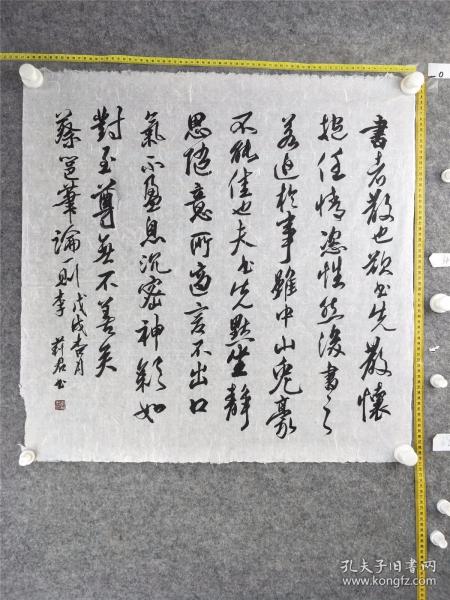 書者散也欲书先散懷
抱任情恣性然後書之
若迫於事雖中山兔豪
不能佳也夫书先默坐靜
思隨意所適言不出口
氣不盈息沉密神彩如
對至尊無不善矣
蔡邕筆論一則
戊戌杏月
李
君书
孔夫子旧书网
www.kongfz.com